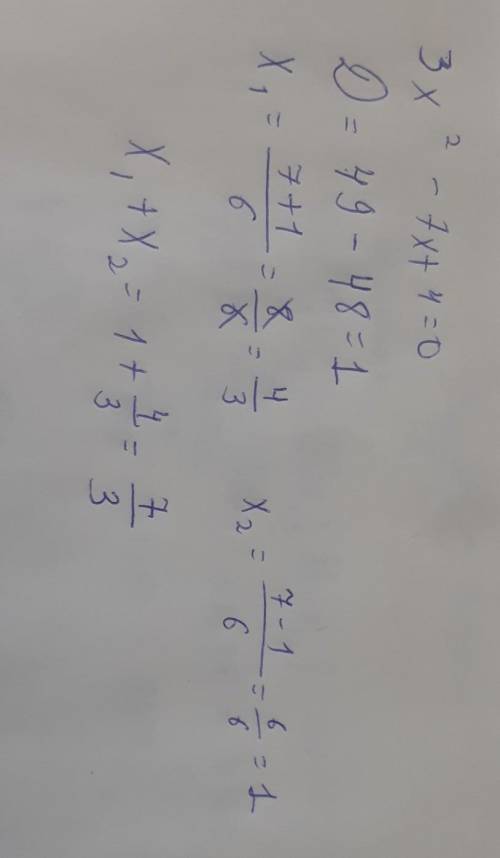 3x² - 7x + 4 = 0
D = 49 - 48 = 1
x₁ = (7+1)/6 = 8/6 = 4/3
x₂ = (7-1)/6 = 6/6 = 1
x₁ + x₂ = 1 + 4/3 = 7/3